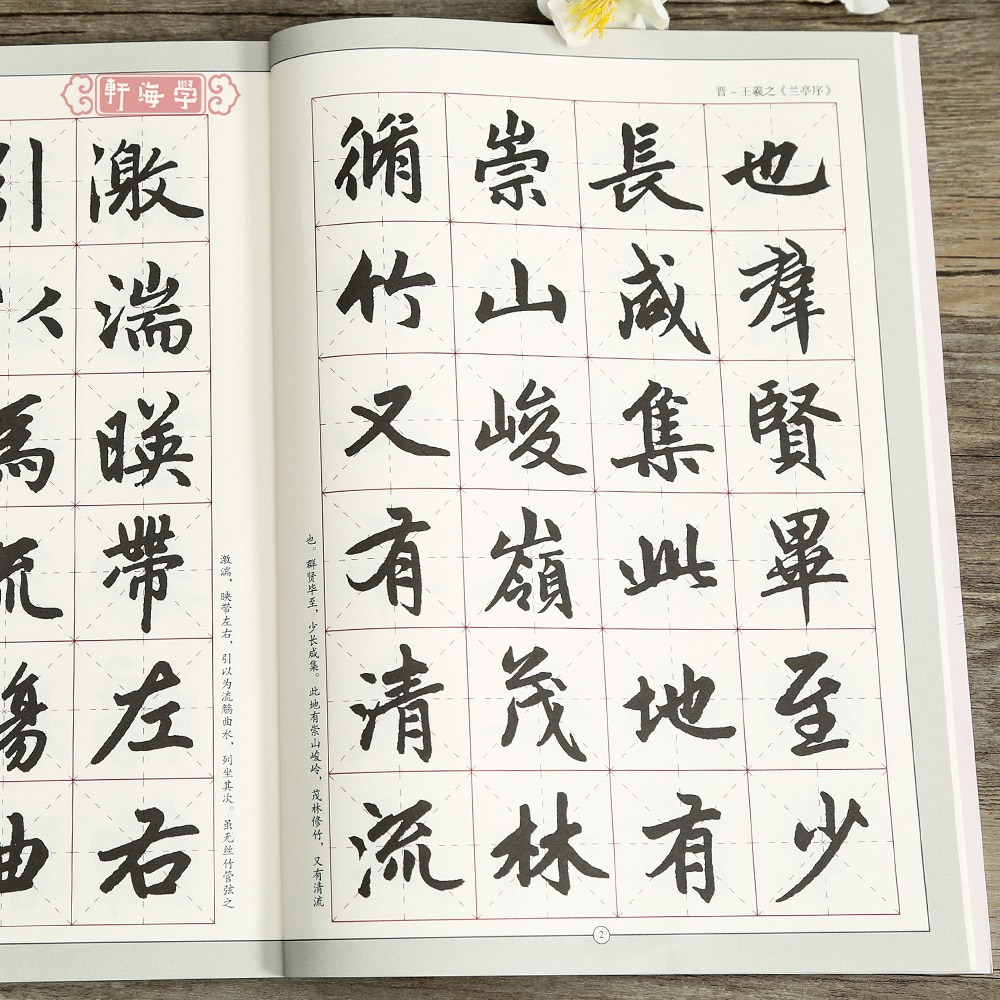 晋－王羲之《兰亭序》
也羣賢畢至少
長咸集此地有
崇山峻嶺茂林
脩竹又有清流
也。群贤毕至，少长咸集。此地有崇山峻岭，茂林修竹，又有清流
2
軒海學
激湍暎帶左右
引以為流觴曲
激湍，映带左右，引以为流觞曲水，列坐其次。虽无丝竹管弦之